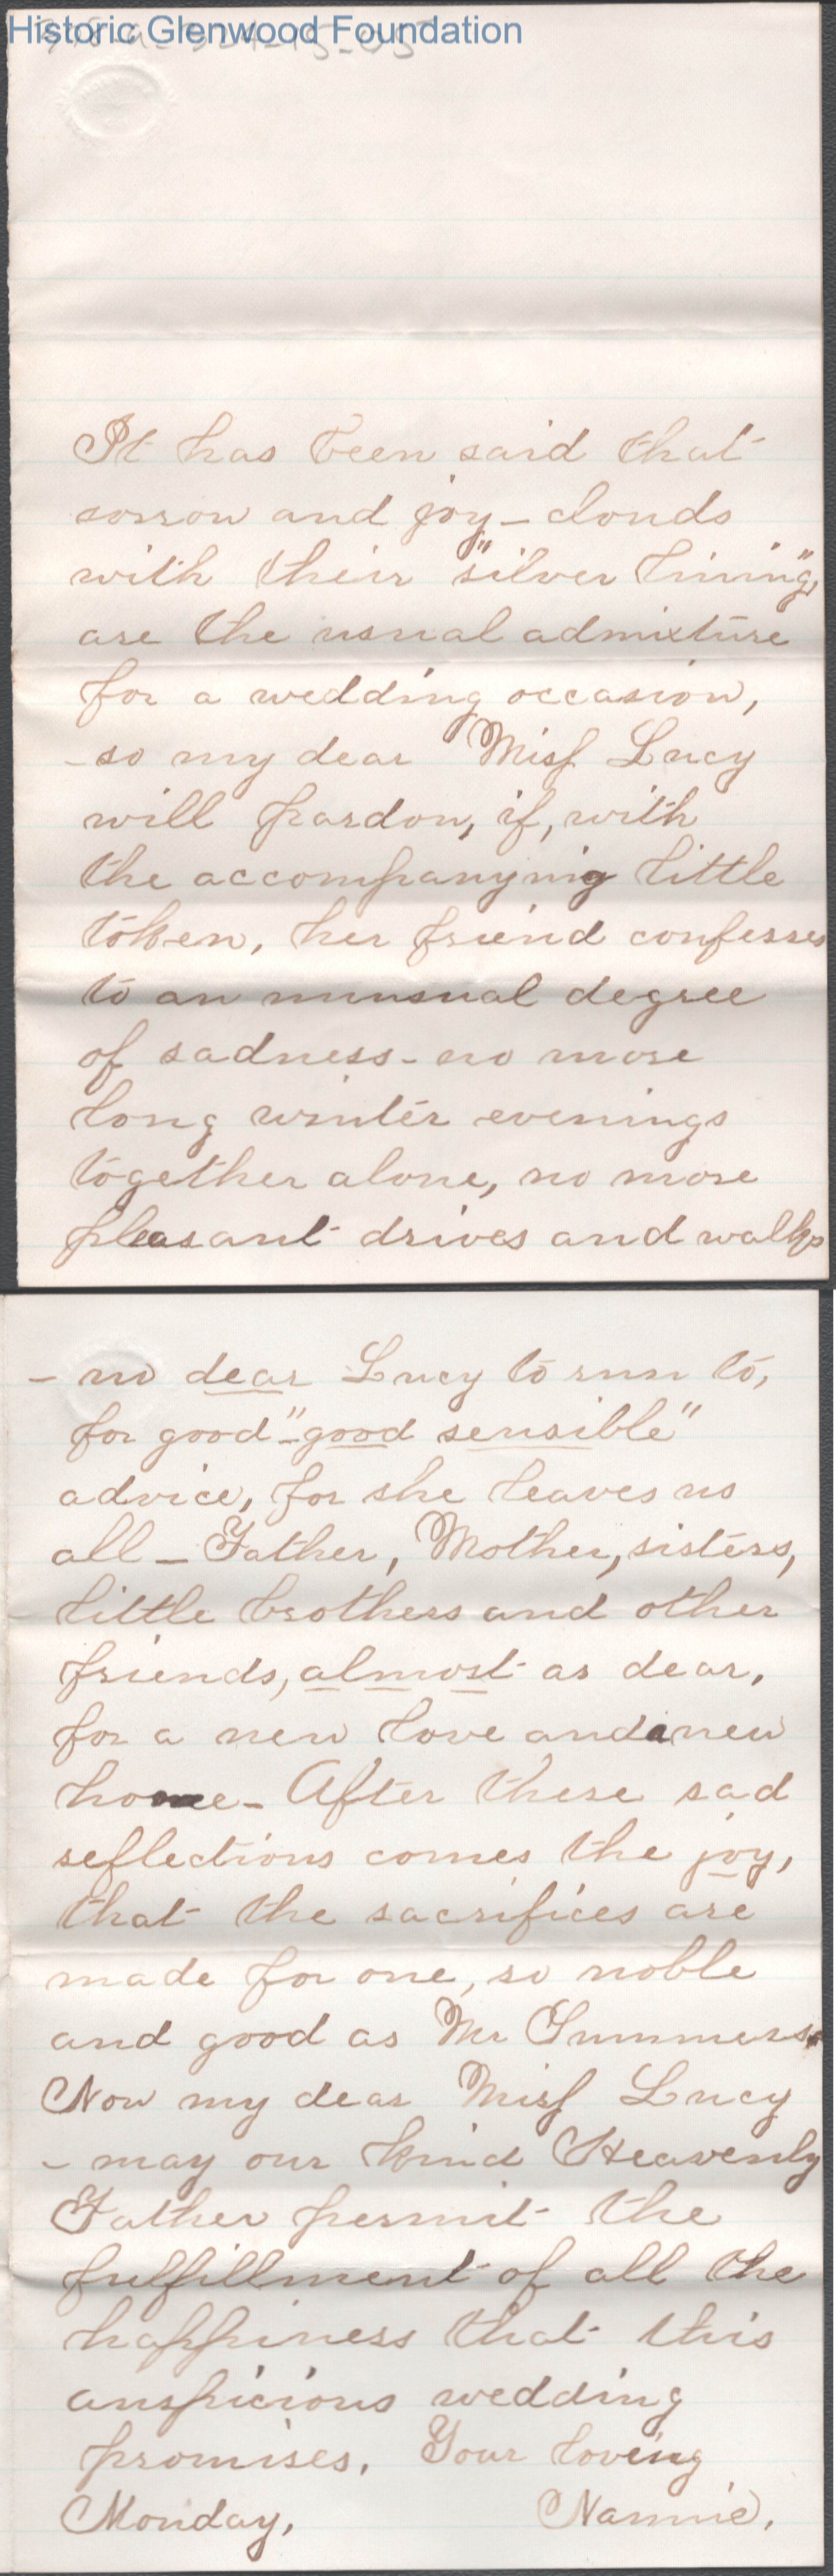 Historic Glenwood Foundation
It has been said that
sorrow and joy - clouds
with their "silver lining",
are the usual admixture
for a wedding occasion,
- so my dear Miss Lucy
will pardon, if, with
the accompanying little
token, her friend confesses
to an unusual degree
of sadness - no more
long winter evenings
together alone, no more
pleasant drives and walks
- no dear Lucy to run to,
for good "- good sensible"
advice, for she leaves us
all - Father, Mother, sisters,
little brothers and other
friends, almost as dear,
for a new love and a new
home - After these sad
reflections comes the joy,
that the sacrifices are
made for one, so noble
and good as Mr Summers.
Now my dear Miss Lucy
- may our kind Heavenly
Father permit the
fulfillment of all the
happiness that this
auspicious wedding
promises. Your loving
Monday, Nannie.